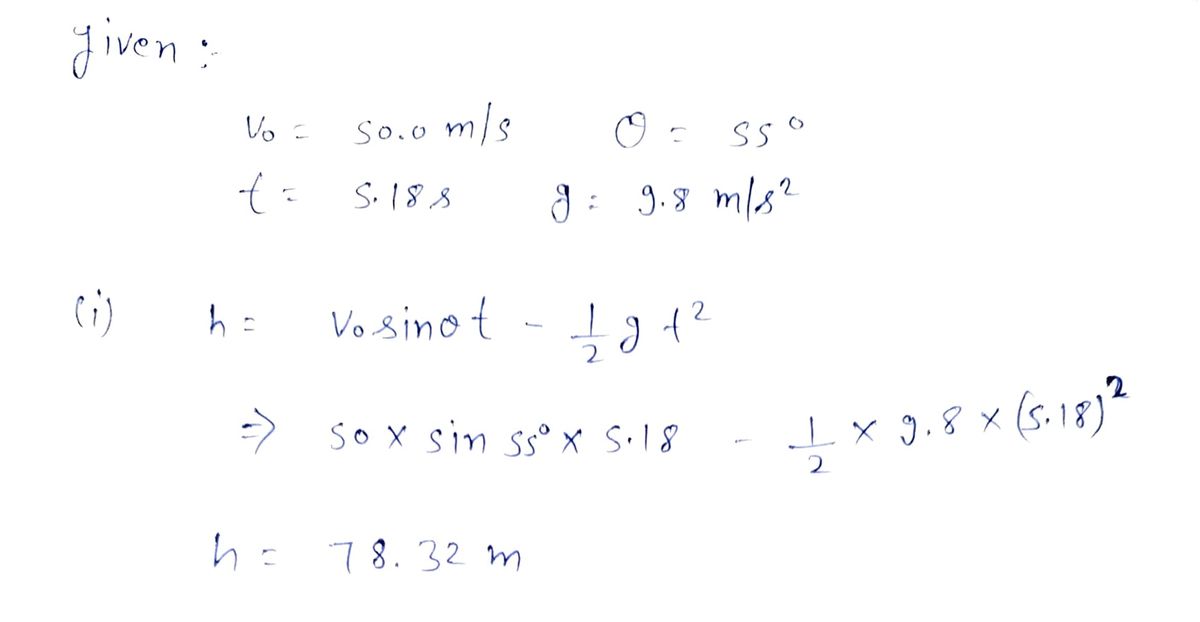 given :-
V₀ = 50.0 m/s θ = 55°
t = 5.18 s g = 9.8 m/s²
(i) h = V₀ sinθ t - 1/2 g t²
⇒ 50 x sin 55° x 5.18 - 1/2 x 9.8 x (5.18)²
h = 78.32 m